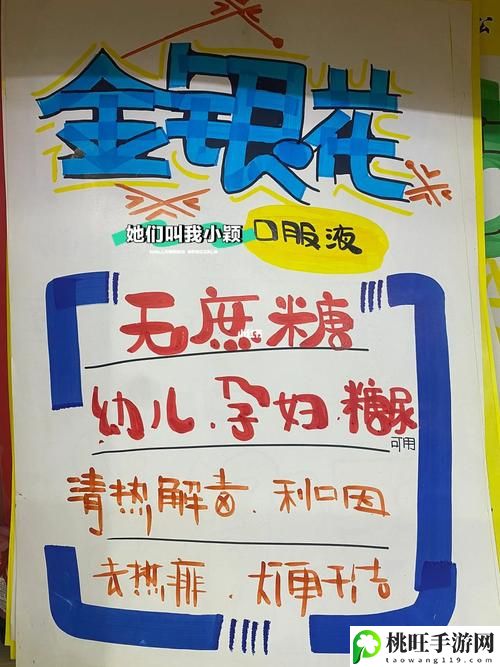 金银花
她们叫我小颖
口服液
无庶糖
幼儿.孕妇.糖尿
可用
清热解毒.利口因
去热痱.大便干洁
桃旺手游网
taowang119.com